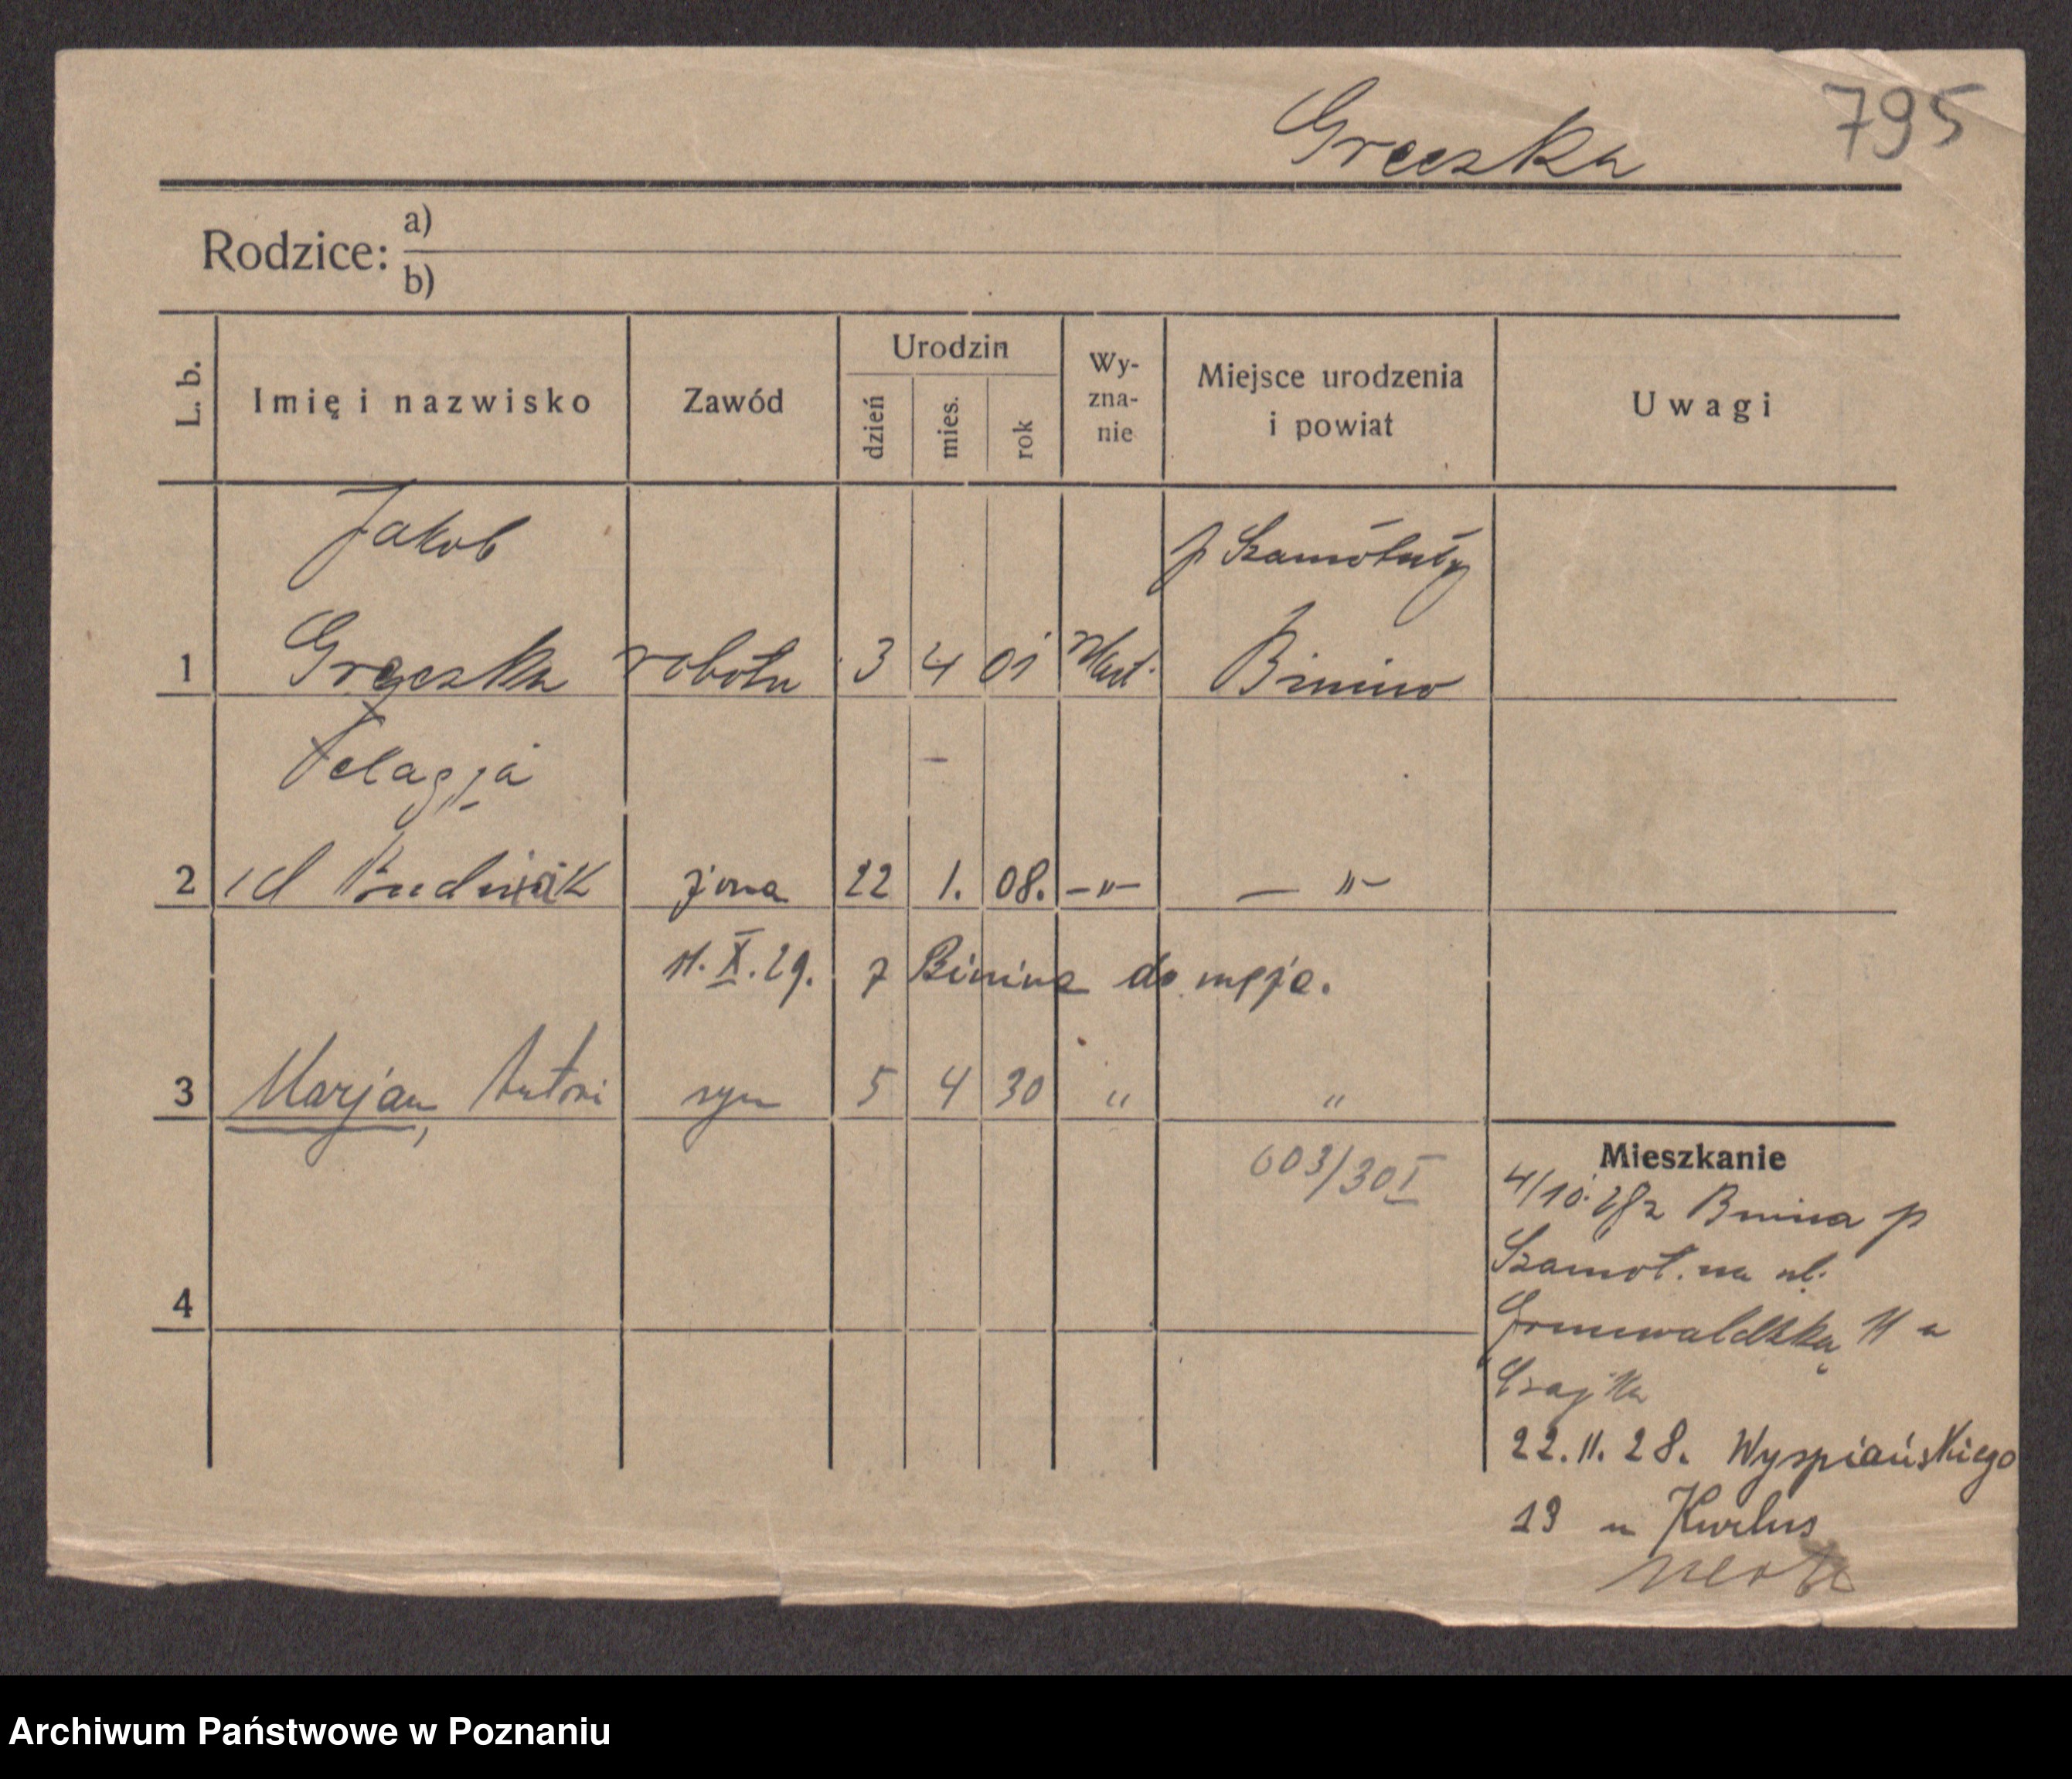 795
Greczka
Rodzice: a)
b)
L. b. Imię i nazwisko Zawód Urodzin dzień mies. rok Wy-zna-nie Miejsce urodzenia i powiat Uwagi
Jakob p Szamotuły
1 Greczka robotn 3 4 01 Binino
Pelagja
2 żona 22 1. 08. -"- - "-
11. X. 29. z Binina do męża.
3 Marjan, Antoni syn 5 4 30 " "
603/30 I
Mieszkanie
4/10. 28 z Binina p
Szamot. na ul.
4 Grunwaldzką 11 u
Czajka
22. 11. 28. Wyspiańskiego
19 u
Archiwum Państwowe w Poznaniu